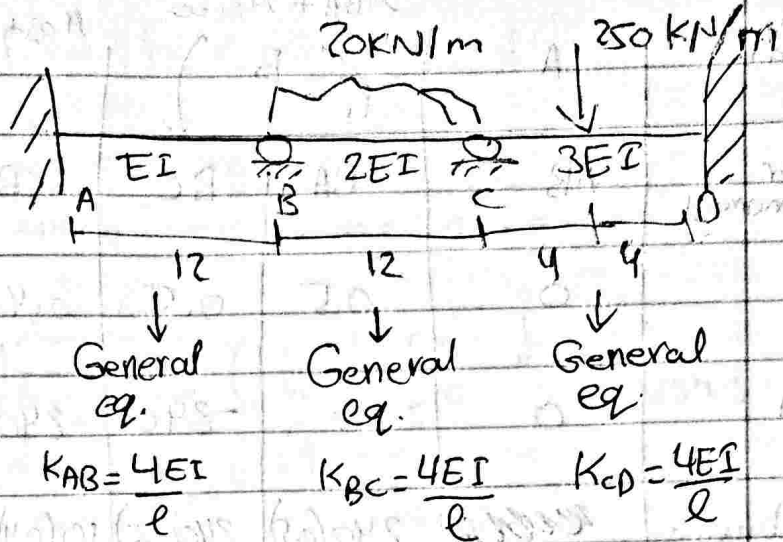 20KN/m 250 KN/m
EI 2EI 3EI
A B C D
12 12 4 4
General General General
eq. eq. eq.
KAB = 4EI/l KBC = 4EI/l KCD = 4EI/l